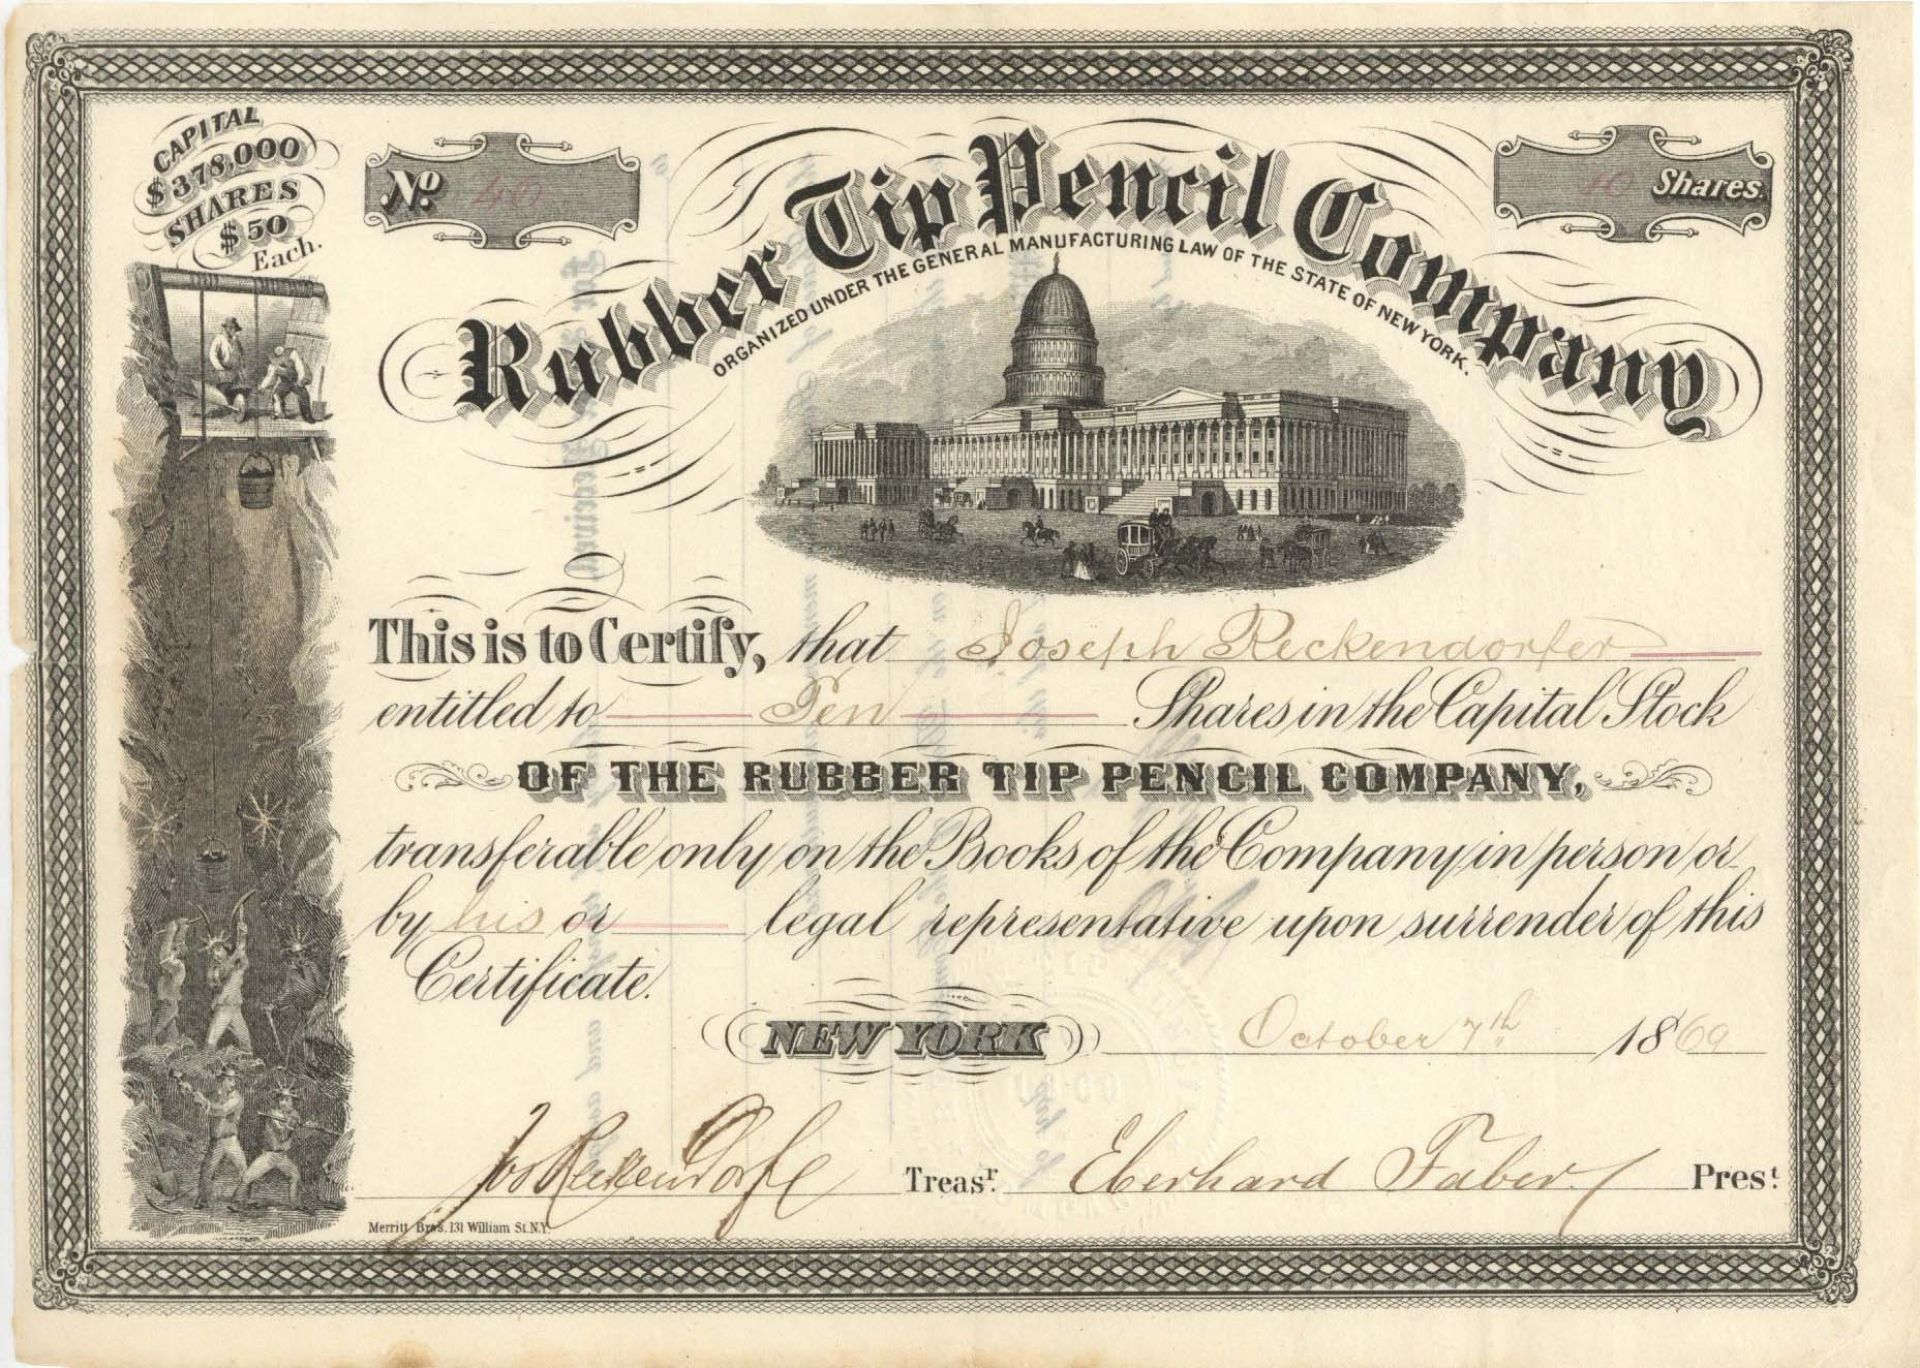 CAPITAL
$378,000
SHARES
$50
Each.
No. 46
10 Shares.
Rubber Tip Pencil Company
ORGANIZED UNDER THE GENERAL MANUFACTURING LAW OF THE STATE OF NEW YORK.
This is to Certify, that Joseph Reckendorfer
entitled to Ten Shares in the Capital Stock
OF THE RUBBER TIP PENCIL COMPANY,
transferable only on the Books of the Company in person or
by his or legal representative upon surrender of this
Certificate.
NEW YORK October 7th 1869
Jos Reckendorfer Treasr. Eberhard Faber Prest.
Merritt Bros. 131 William St. N.Y.